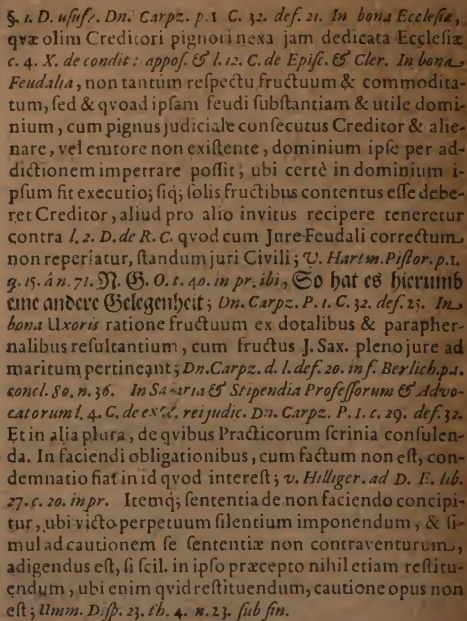 §. 1. D. usufr. Dn. Carpz. p. 1 C. 32. def. 21. In bona Ecclesiæ,
qvæ olim Creditori pignori nexa jam dedicata Ecclesiæ
c. 4. X. de condit: appos. & l. 12. C. de Episc. & Cler. In bona
Feudalia, non tantum respectu fructuum & commodita-
tum, sed & qvoad ipsam feudi substantiam & utile domi-
nium, cum pignus judiciale consecutus Creditor & alie-
nare, vel emtore non existente, dominium ipse per ad-
dictionem impetrare possit; ubi certè in dominium i-
psum fit executio; siq; solis fructibus contentus esse debe-
ret Creditor, aliud pro alio invitus recipere teneretur
contra l. 2. D. de R. C. qvod cum Jure Feudali correctum
non reperiatur, standum juri Civili; V. Hartm. Pistor. p. 1.
q. 15. â n. 71. N. G. O. t. 40. in pr. ibi, So hat es hierumb
eine andere Gelegenheit; Dn. Carpz. P. 1. C. 32. def. 25. In
bona Uxoris ratione fructuum ex dotalibus & parapher-
nalibus resultantium, cum fructus J. Sax. pleno jure ad
maritum pertineant; Dn. Carpz. d. l. def. 20. in f. Berlich. p. 1.
concl. 80. n. 36. In Salaria & Stipendia Professorum & Advo-
catorum l. 4. C. de exec. rei judic. Dn. Carpz. P. 1. c. 29. def. 32.
Et in alia plura, de qvibus Practicorum scrinia consulen-
da. In faciendi obligationibus, cum factum non est, con-
demnatio fiat in id qvod interest; v. Hilliger. ad D. E. lib.
27. c. 20. in pr. Itemq; sententia de non faciendo concipi-
tur, ubi victo perpetuum silentium imponendum, & si-
mul ad cautionem se sententiæ non contraventurum,
adigendus est, si scil. in ipso præcepto nihil etiam restitu-
endum, ubi enim qvid restituendum, cautione opus non
est; Umm. Disp. 23. th. 4. n. 23. sub fin.